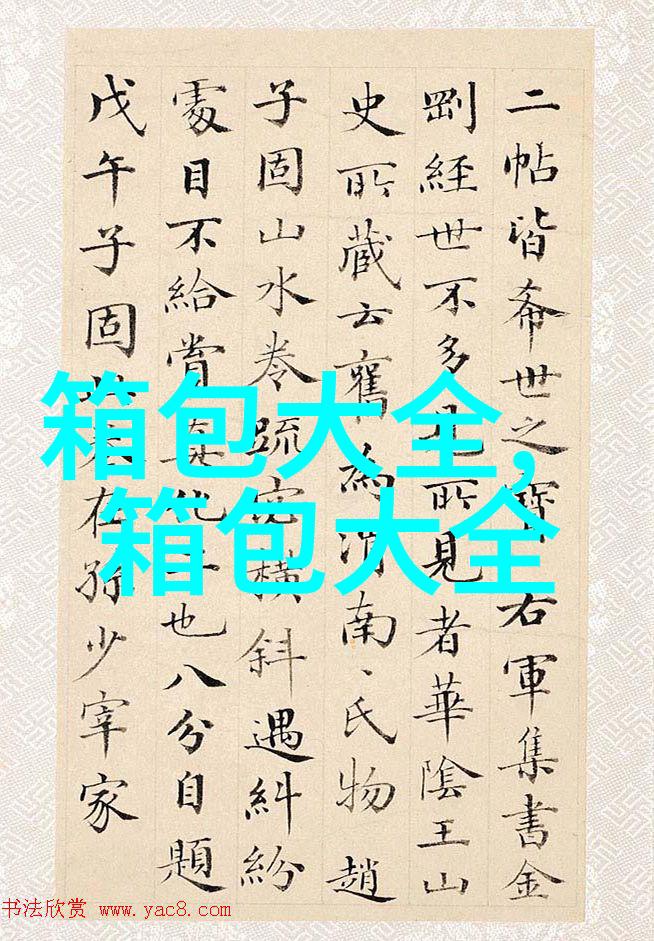 二帖皆希世之寶右軍集書金
剛經世不多見所見者華陰王山
史所藏云舊為渭南、氏物趙
子固山水卷疏密橫斜遇糾紛
處目不給賞真也八分自題
戊午子固在孫少宰家
箱包大全,
箱包大全
书法欣赏 www.yac8.com